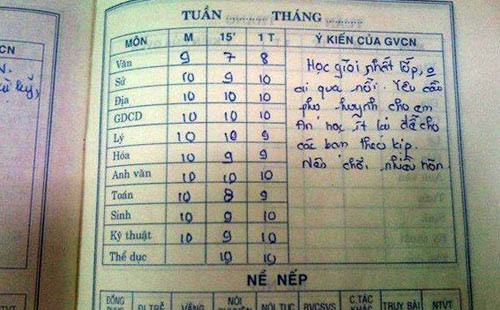 TUẦN ........ THÁNG ........
MÔN M 15' 1 T Ý KIẾN CỦA GVCN
Văn 9 7 8
Sử 10 9 10
Địa 10 10 10
GDCD 10 10 10
Lý 10 10 9
Hóa 10 9 9
Anh văn 10 10 10
Toán 10 8 9
Sinh 10 9 10
Kỹ thuật 10 9 10
Thể dục 10 10
Học giỏi nhất lớp, o
ai qua nổi. Yêu cầu
phụ huynh cho em
ăn học ít lại để cho
các bạn theo kịp.
Nên chơi nhiều hơn
NỀ NẾP
ĐỒNG ĐI TRỄ VẮNG NÓI NÓI TỤC BVCSVS C.TÁC TRUY BÀI NTVT
KHÁC
CN